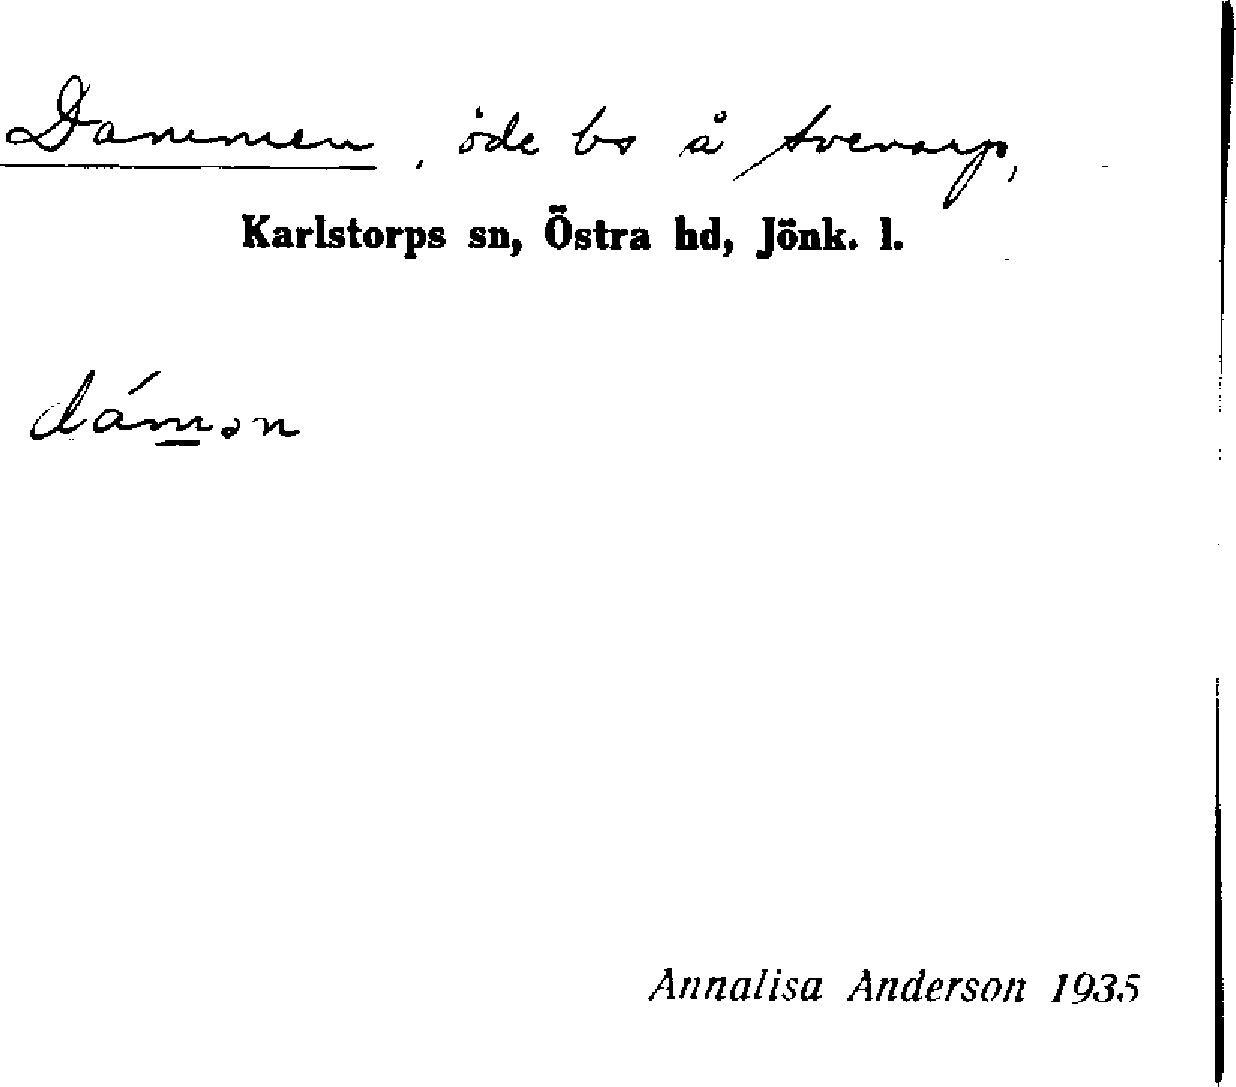 Dammen, öde bs å Svenarp,
Karlstorps sn, Östra hd, Jönk. l.
dámən
Annalisa Anderson 1935